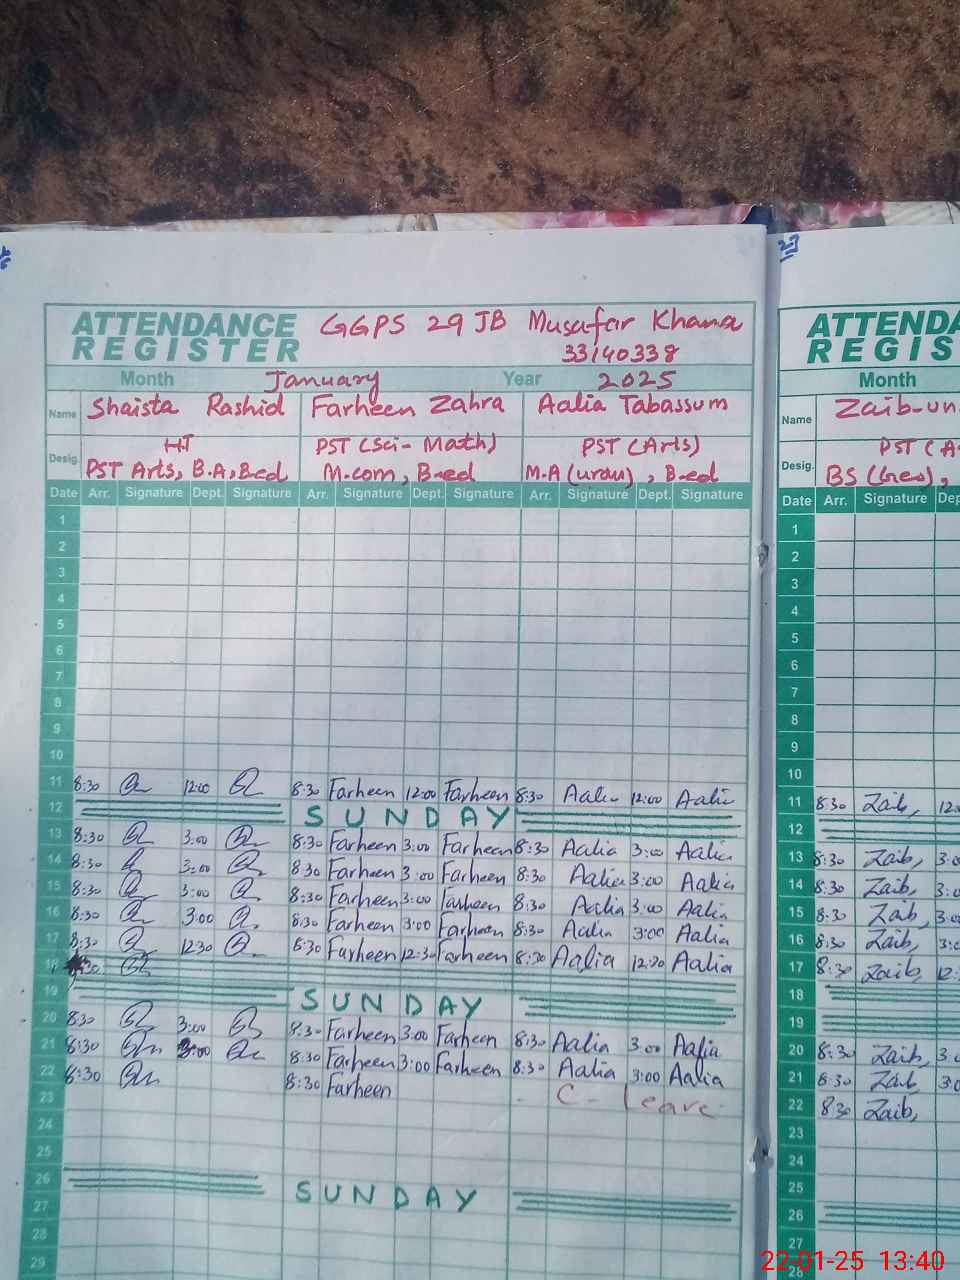 23
ATTENDANCE GGPS 29 JB Musafar Khana
REGISTER 33140338
Month January Year 2025
Name Shaista Rashid Farheen Zahra Aalia Tabassum
Desig. HT PST (Sci-Math) PST (Arts)
PST Arts, B.A, B.ed M.com, B-ed M.A (urdu), B-ed
Date Arr. Signature Dept. Signature Arr. Signature Dept. Signature Arr. Signature Dept. Signature
1
2
3
4
5
6
7
8
9
10
11 8:30 12:00 8:30 Farheen 12:00 Farheen 8:30 Aalia 12:00 Aalia
12 SUNDAY
13 8:30 3:00 8:30 Farheen 3:00 Farheen 8:30 Aalia 3:00 Aalia
14 8:30 3:00 8:30 Farheen 3:00 Farheen 8:30 Aalia 3:00 Aalia
15 8:30 3:00 8:30 Farheen 3:00 Farheen 8:30 Aalia 3:00 Aalia
16 8:30 3:00 8:30 Farheen 3:00 Farheen 8:30 Aalia 3:00 Aalia
17 8:30 12:30 8:30 Farheen 12:30 Farheen 8:30 Aalia 12:30 Aalia
18
19 SUNDAY
20 8:30 3:00 8:30 Farheen 3:00 Farheen 8:30 Aalia 3:00 Aalia
21 8:30 3:00 8:30 Farheen 3:00 Farheen 8:30 Aalia 3:00 Aalia
22 8:30 8:30 Farheen C- Leave
23
24
25
26 SUNDAY
27
28
29
ATTENDA
REGIS
Month
Name Zaib-un
Desig. PST (A
BS (Geo),
Date Arr. Signature Dep
1
2
3
4
5
6
7
8
9
10
11 8:30 Zaib, 12:0
12
13 8:30 Zaib, 3:0
14 8:30 Zaib, 3:0
15 8:30 Zaib, 3:0
16 8:30 Zaib, 3:0
17 8:30 Zaib, 12:
18
19
20 8:30 Zaib, 3:0
21 8:30 Zaib, 3:0
22 8:30 Zaib,
23
24
25
26
27
28
22-01-25 13:40